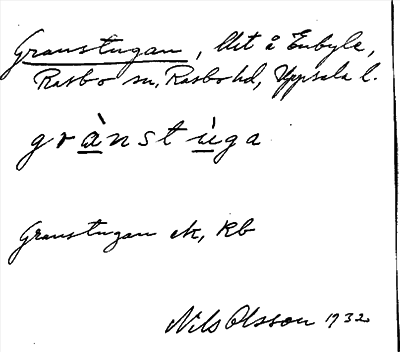 Granstugan, lht å Enbyle,
Rasbo sn, Rasbo hd, Uppsala l.
grànstùga
Granstugan ek, Kb
Nils Olsson 1932